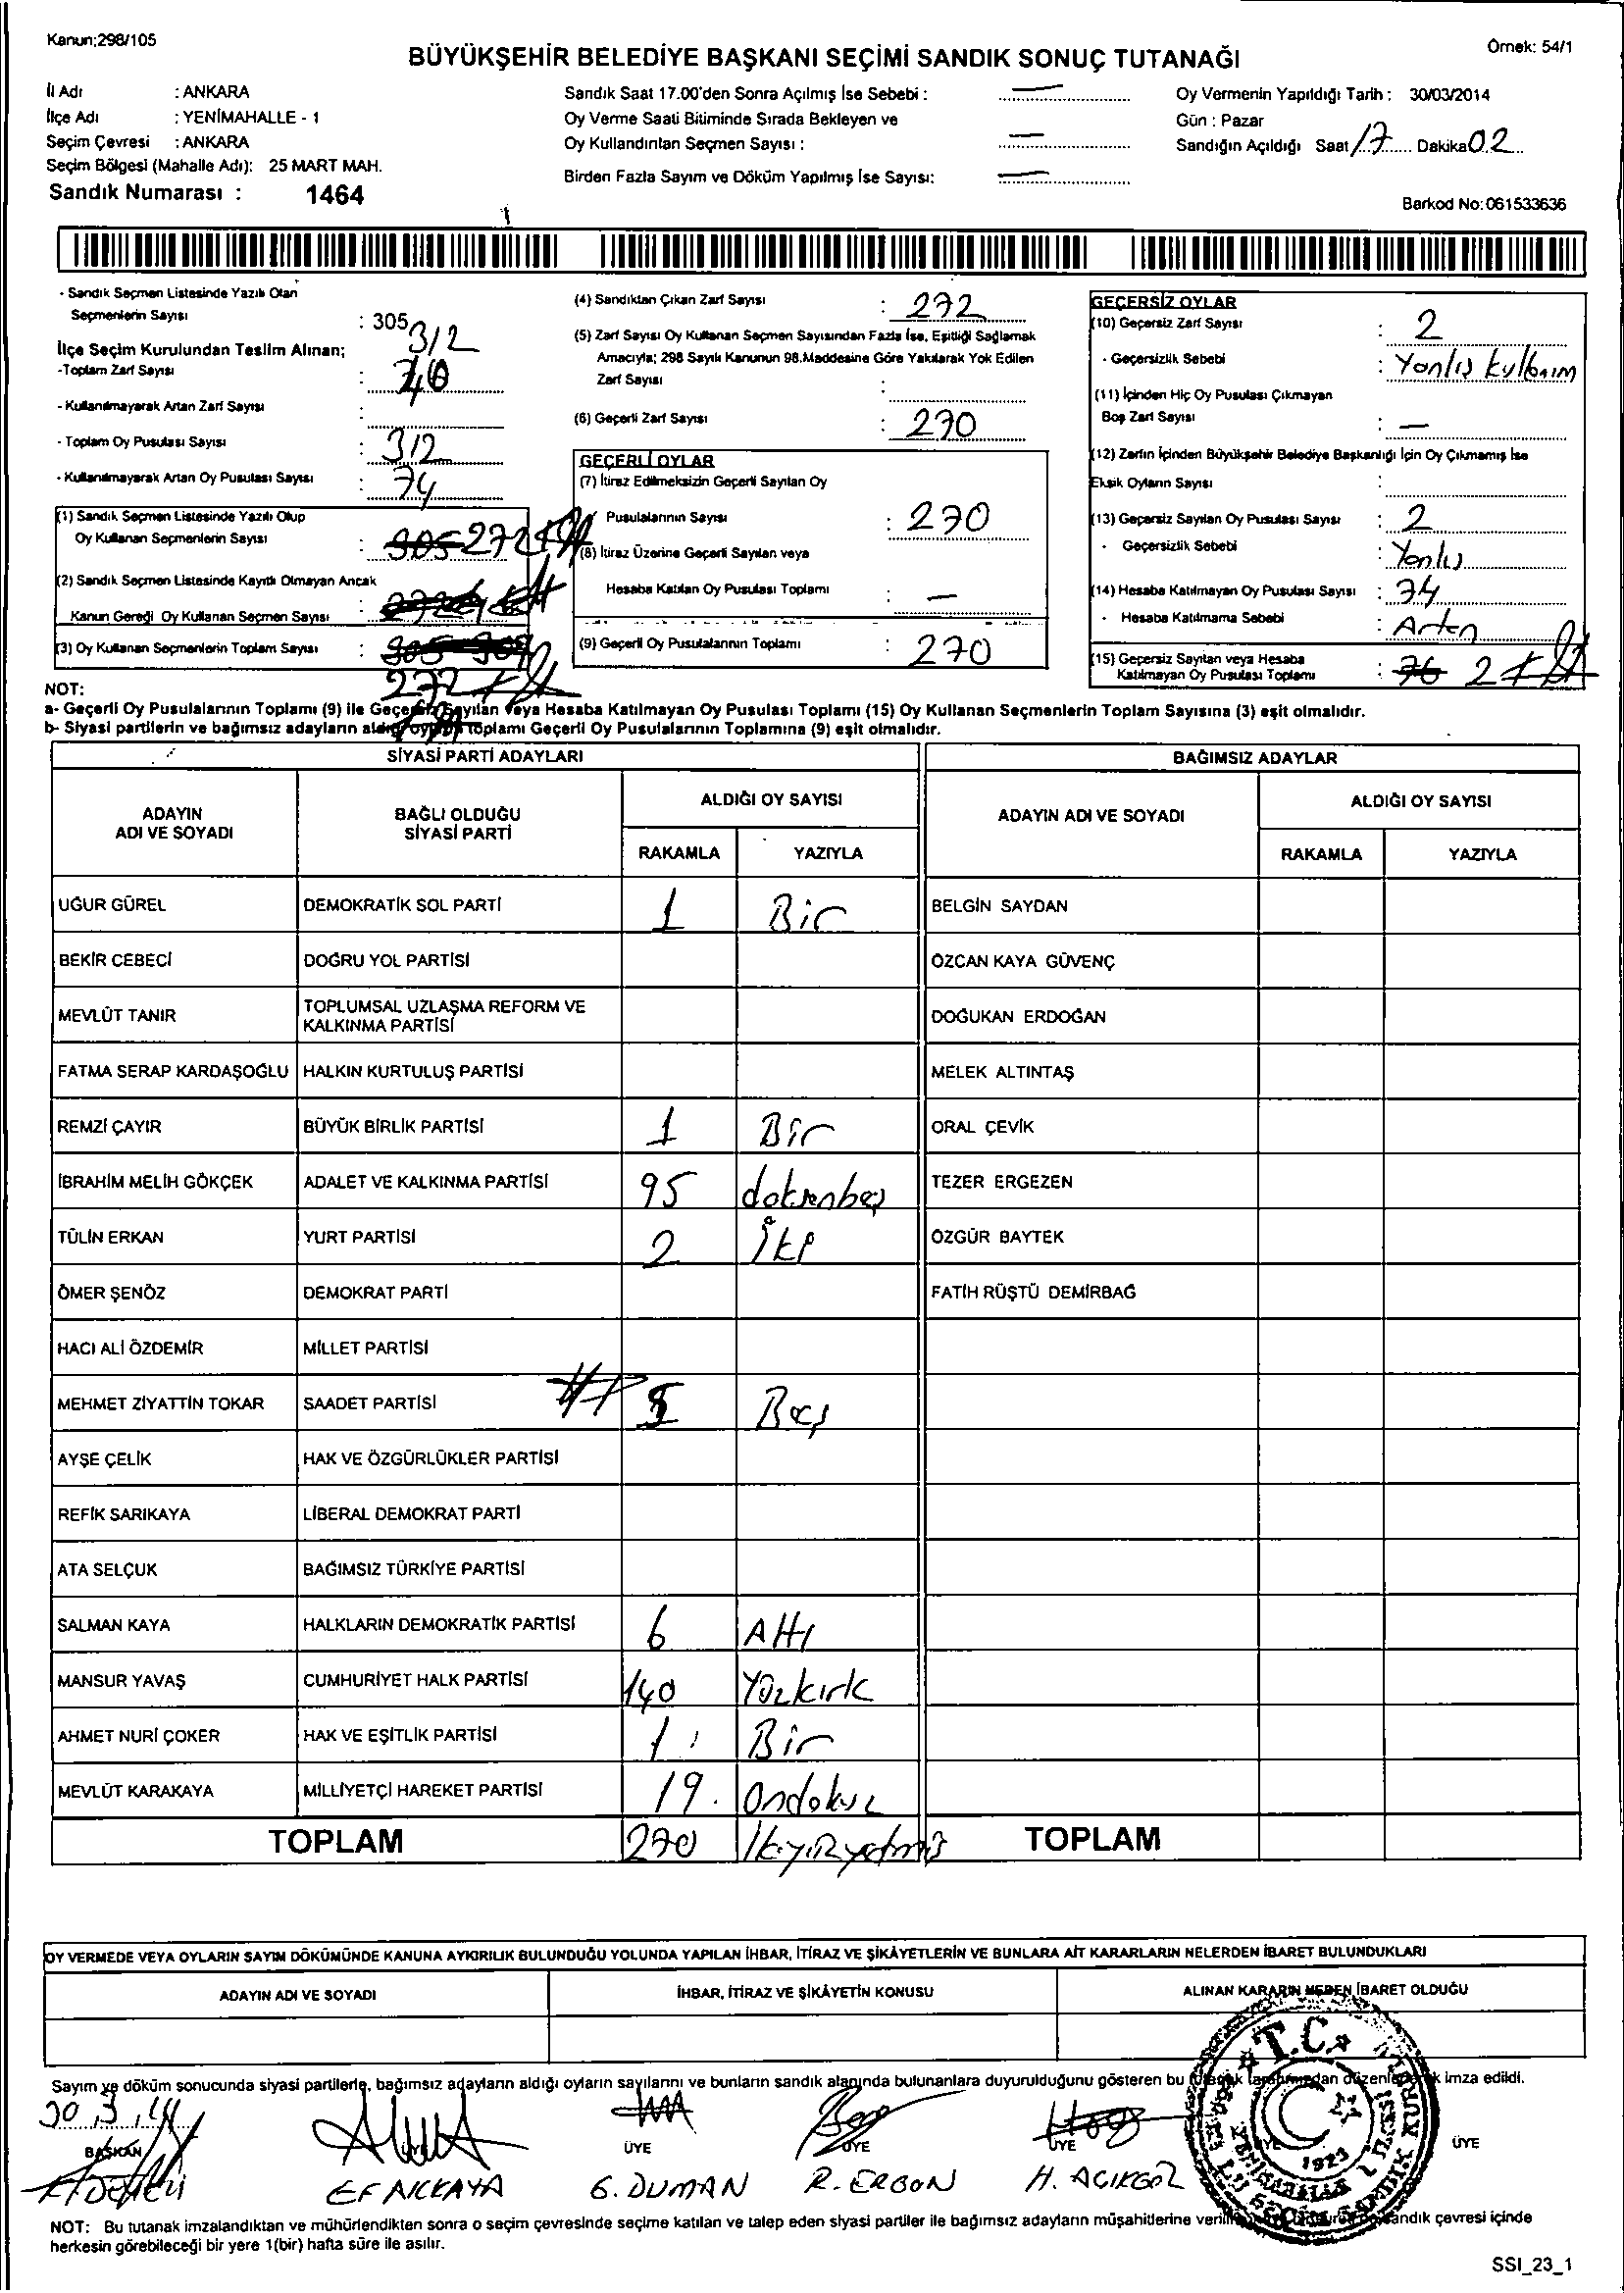 Kanun;298/105
Örnek: 54/1
BÜYÜKŞEHİR BELEDİYE BAŞKANI SEÇİMİ SANDIK SONUÇ TUTANAĞI
İl Adı : ANKARA
İlçe Adı : YENİMAHALLE - 1
Seçim Çevresi : ANKARA
Seçim Bölgesi (Mahalle Adı): 25 MART MAH.
Sandık Numarası : 1464
Sandık Saat 17.00'den Sonra Açılmış İse Sebebi : —
Oy Verme Saati Bitiminde Sırada Bekleyen ve
Oy Kullandırılan Seçmen Sayısı : —
Birden Fazla Sayım ve Döküm Yapılmış İse Sayısı: —
Oy Vermenin Yapıldığı Tarih : 30/03/2014
Gün : Pazar
Sandığın Açıldığı Saat 17 Dakika 02
Barkod No:061533636
- Sandık Seçmen Listesinde Yazılı Olan
Seçmenlerin Sayısı : 305
İlçe Seçim Kurulundan Teslim Alınan; 312
-Toplam Zarf Sayısı : 40
- Kullanılmayarak Artan Zarf Sayısı :
- Toplam Oy Pusulası Sayısı : 312
- Kullanılmayarak Artan Oy Pusulası Sayısı : 74
(1) Sandık Seçmen Listesinde Yazılı Olup
Oy Kullanan Seçmenlerin Sayısı : 305 272
(2) Sandık Seçmen Listesinde Kayıtlı Olmayan Ancak
Kanun Gereği Oy Kullanan Seçmen Sayısı :
(3) Oy Kullanan Seçmenlerin Toplam Sayısı : 305
272
(4) Sandıktan Çıkan Zarf Sayısı : 272
(5) Zarf Sayısı Oy Kullanan Seçmen Sayısından Fazla İse, Eşitliği Sağlamak
Amacıyla; 298 Sayılı Kanunun 98.Maddesine Göre Yakılarak Yok Edilen
Zarf Sayısı :
(6) Geçerli Zarf Sayısı : 270
GEÇERLİ OYLAR
(7) İtiraz Edilmeksizin Geçerli Sayılan Oy
Pusulalarının Sayısı : 270
(8) İtiraz Üzerine Geçerli Sayılan veya
Hesaba Katılan Oy Pusulası Toplamı : —
(9) Geçerli Oy Pusulalarının Toplamı : 270
GEÇERSİZ OYLAR
(10) Geçersiz Zarf Sayısı : 2
- Geçersizlik Sebebi : Yanlış
(11) İçinden Hiç Oy Pusulası Çıkmayan
Boş Zarf Sayısı : —
(12) Zarfın İçinden Büyükşehir Belediye Başkanlığı İçin Oy Çıkmamış İse
Eksik Oyların Sayısı :
(13) Geçersiz Sayılan Oy Pusulası Sayısı : 2
- Geçersizlik Sebebi : Yanlış
(14) Hesaba Katılmayan Oy Pusulası Sayısı : 74
- Hesaba Katılmama Sebebi : Artan
(15) Geçersiz Sayılan veya Hesaba
Katılmayan Oy Pusulası Toplamı : 76 2
NOT:
a- Geçerli Oy Pusulalarının Toplamı (9) ile Geçersiz Sayılan veya Hesaba Katılmayan Oy Pusulası Toplamı (15) Oy Kullanan Seçmenlerin Toplam Sayısına (3) eşit olmalıdır.
b- Siyasi partilerin ve bağımsız adayların aldığı oyların toplamı Geçerli Oy Pusulalarının Toplamına (9) eşit olmalıdır.
SİYASİ PARTİ ADAYLARI BAĞIMSIZ ADAYLAR
ADAYIN ADI VE SOYADI BAĞLI OLDUĞU SİYASİ PARTİ ALDIĞI OY SAYISI ADAYIN ADI VE SOYADI ALDIĞI OY SAYISI
RAKAMLA YAZIYLA RAKAMLA YAZIYLA
UĞUR GÜREL DEMOKRATİK SOL PARTİ 1 Bir BELGİN SAYDAN
BEKİR CEBECİ DOĞRU YOL PARTİSİ ÖZCAN KAYA GÜVENÇ
MEVLÜT TANIR TOPLUMSAL UZLAŞMA REFORM VE KALKINMA PARTİSİ DOĞUKAN ERDOĞAN
FATMA SERAP KARDAŞOĞLU HALKIN KURTULUŞ PARTİSİ MELEK ALTINTAŞ
REMZİ ÇAYIR BÜYÜK BİRLİK PARTİSİ 1 Bir ORAL ÇEVİK
İBRAHİM MELİH GÖKÇEK ADALET VE KALKINMA PARTİSİ 95 doksanbeş TEZER ERGEZEN
TÜLİN ERKAN YURT PARTİSİ 2 İki ÖZGÜR BAYTEK
ÖMER ŞENÖZ DEMOKRAT PARTİ FATİH RÜŞTÜ DEMİRBAĞ
HACI ALİ ÖZDEMİR MİLLET PARTİSİ
MEHMET ZİYATTİN TOKAR SAADET PARTİSİ 5 Beş
AYŞE ÇELİK HAK VE ÖZGÜRLÜKLER PARTİSİ
REFİK SARIKAYA LİBERAL DEMOKRAT PARTİ
ATA SELÇUK BAĞIMSIZ TÜRKİYE PARTİSİ
SALMAN KAYA HALKLARIN DEMOKRATİK PARTİSİ 6 Altı
MANSUR YAVAŞ CUMHURİYET HALK PARTİSİ 140 Yüzkırk
AHMET NURİ ÇOKER HAK VE EŞİTLİK PARTİSİ 1 Bir
MEVLÜT KARAKAYA MİLLİYETÇİ HAREKET PARTİSİ 19. Ondokuz
TOPLAM 270 İkiyüzyetmiş TOPLAM
OY VERMEDE VEYA OYLARIN SAYIM DÖKÜMÜNDE KANUNA AYKIRILIK BULUNDUĞU YOLUNDA YAPILAN İHBAR, İTİRAZ VE ŞİKÂYETLERİN VE BUNLARA AİT KARARLARIN NELERDEN İBARET BULUNDUKLARI
ADAYIN ADI VE SOYADI İHBAR, İTİRAZ VE ŞİKÂYETİN KONUSU ALINAN KARARIN NEDEN İBARET OLDUĞU
Sayım ve döküm sonucunda siyasi partilerle, bağımsız adayların aldığı oyların sayılarını ve bunların sandık alanında bulunanlara duyurulduğunu gösteren bu tutanak tarafımızdan düzenlenerek imza edildi.
30.3.14
BAŞKAN ÜYE ÜYE ÜYE ÜYE ÜYE ÜYE
EF AKKAYA G. DUMAN R. ERGON H. AÇIKGÖZ
T.C.
1923
NOT: Bu tutanak imzalandıktan ve mühürlendikten sonra o seçim çevresinde seçime katılan ve talep eden siyasi partiler ile bağımsız adayların müşahitlerine sandık çevresi içinde
herkesin görebileceği bir yere 1(bir) hafta süre ile asılır.
SSI_23_1